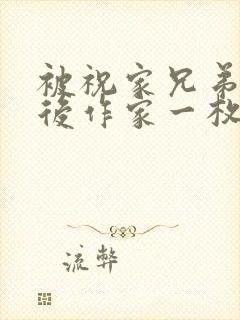 被祝家兄弟
後作家一枚
流弊